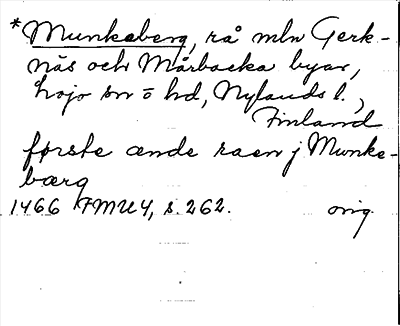 *Munkaberg, rå mln Gerk-
näs och Mårbacka byar,
Lojo sn ö hd, Nylands l.,
Finland
første ænde raen j Munke-
bærg
1466 FMU4, s. 262. orig.